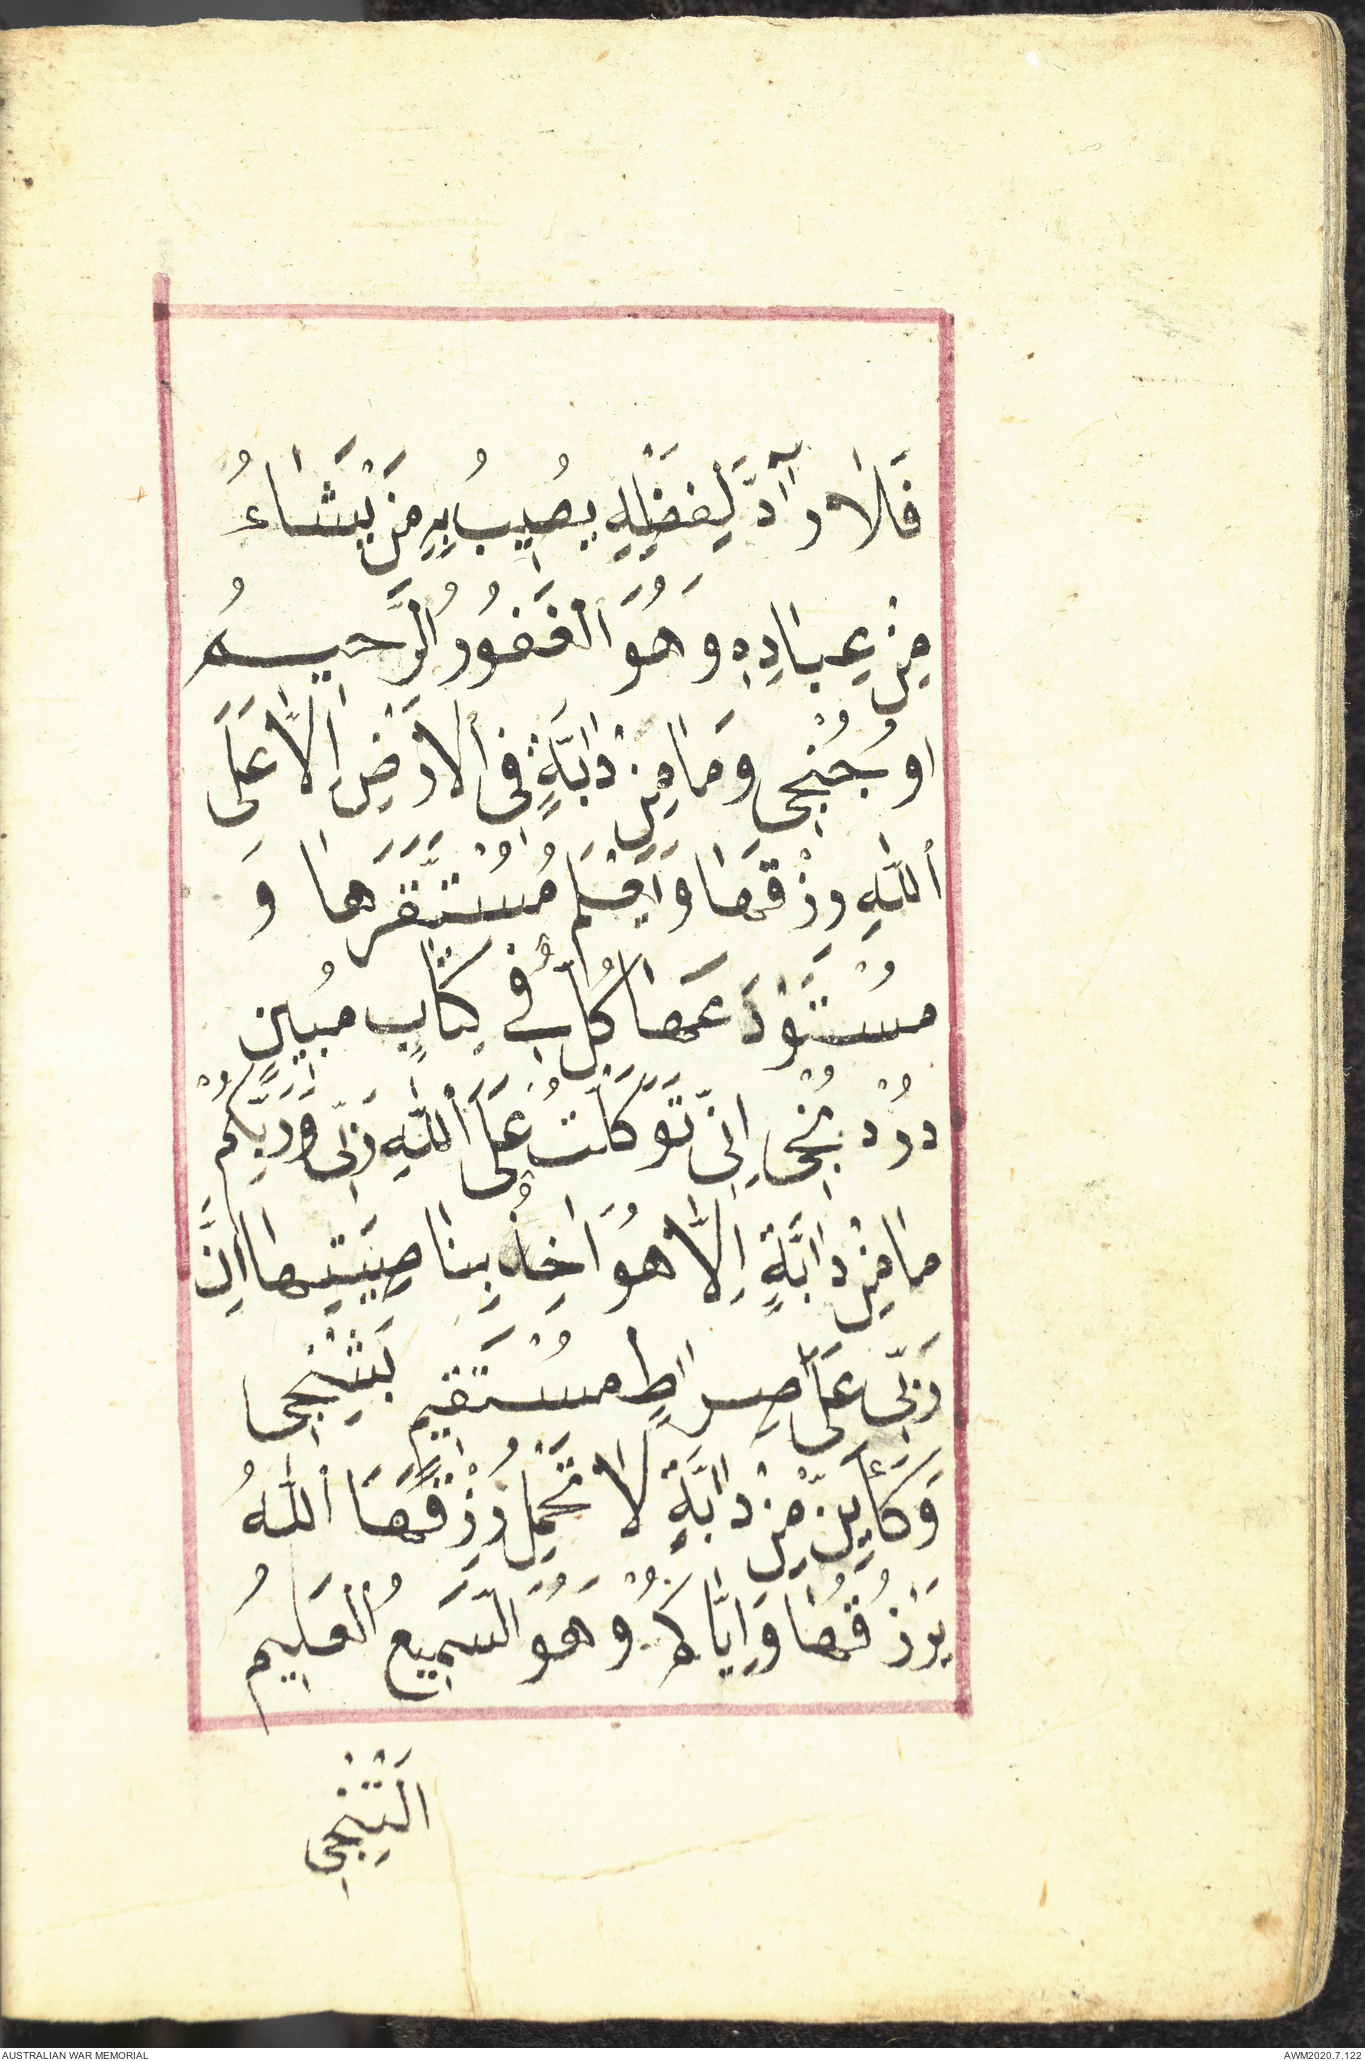 فَلَا رَآدَّ لِفَضْلِهِ يُصِيبُ بِهِ مَنْ يَشَاءُ
مِنْ عِبَادِهِ وَهُوَ الْغَفُورُ الرَّحِيمُ
اوُچُنْجِى وَمَا مِنْ دَابَّةٍ فِى الْاَرْضِ اِلَّا عَلَى
اللّٰهِ رِزْقُهَا وَيَعْلَمُ مُسْتَقَرَّهَا وَ
مُسْتَوْدَعَهَا كُلٌّ فِى كِتَابٍ مُبِينٍ
دُرْدُنْجِى اِنِّى تَوَكَّلْتُ عَلَى اللّٰهِ رَبِّى وَرَبِّكُمْ
مَا مِنْ دَابَّةٍ اِلَّا هُوَ اٰخِذٌ بِنَاصِيَتِهَا اِنَّ
رَبِّى عَلَى صِرَاطٍ مُسْتَقِيمٍ بَشِنْجِى
وَكَاَيِّنْ مِنْ دَابَّةٍ لَا تَحْمِلُ رِزْقَهَا اَللّٰهُ
يَرْزُقُهَا وَاِيَّاكُمْ وَهُوَ السَّمِيعُ الْعَلِيمُ
اَلْتِنْجِى
AUSTRALIAN WAR MEMORIAL
AWM2020.7.122